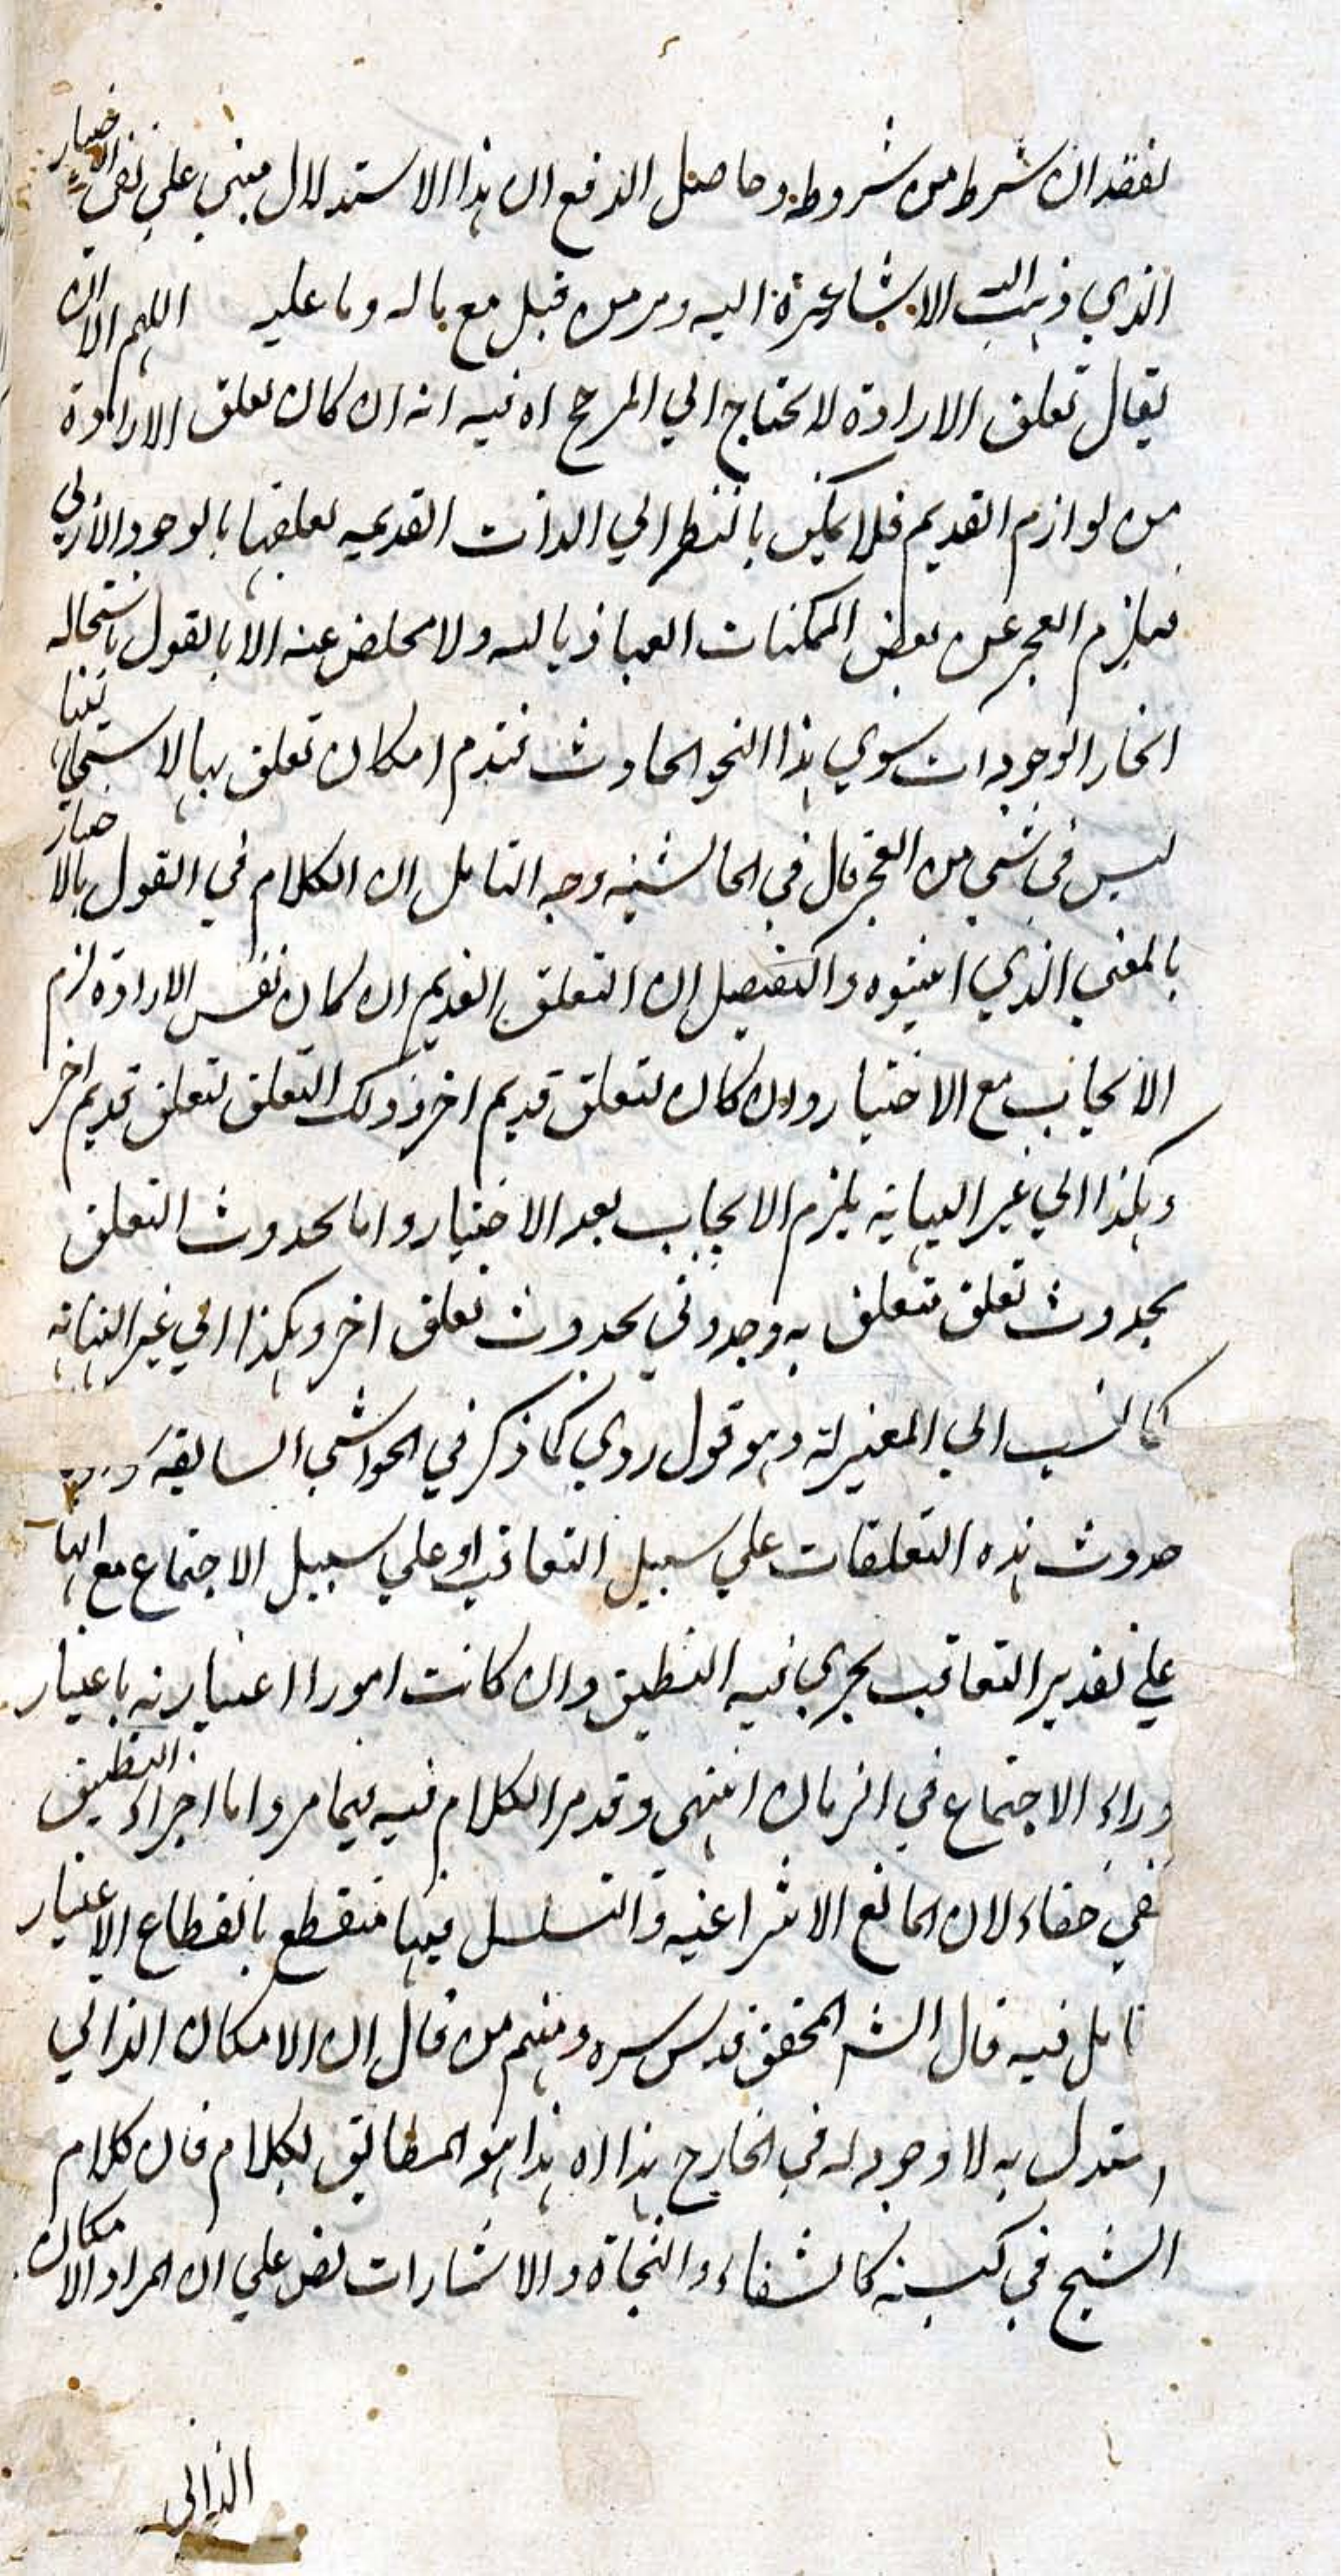 لفقدان شرط من شروطه وحاصل الدفع ان هذا الاستدلال مبني علي نفي الاختيار
الذي ذهبت الاشاعرة اليه ومر من قبل مع ماله وما عليه اللهم الا ان
يقال تعلق الارادة لا يحتاج الي المرجح اه فيه انه ان كان تعلق الارادة
من لوازم القديم فلا يمكن بالنظر الي الذات القديمه تعلقها بالوجود الأزلي
فيلزم العجز عن بعض الممكنات العياذ بالله ولا مخلص عنه الا بالقول باستحاله
انحاء الوجودات سوي هذا النحو الحادث فتدم امكان تعلق بها لاستحالتها
ليس في شي من العجز قال في الحاشيه وجه التامل ان الكلام في القول بالاختيار
بالمعني الذي اثبتوه والتفصيل ان التعلق القديم ان كان نفس الارادة لزم
الايجاب مع الاختيار وان كان لتعلق قديم اخر وذلك التعلق لتعلق قديم اخر
وهكذا الي غير النهاية يلزم الايجاب بعد الاختيار واما حدوث التعلق
بحدوث تعلق متعلق به وحدوثي بحدوث تعلق اخر وهكذا الي غير النهاية
كما نسب الي المعتزلة وهو قول ردي كما ذكر في الحواشي السابقة
حدوث هذه التعلقات علي سبيل التعاقب او علي سبيل الاجتماع مع انها
علي تقدير التعاقب يجري فيه التطبيق وان كانت امورا اعتبارية باعتبار
وراء الاجتماع في الزمان انتهى وقد مر الكلام فيه فيما مر واما اجراء التطبيق
ففي خفاء لان المانع الانتزاعية والتسلسل فيها منقطع بانقطاع الاعتبار
تامل فيه قال الشه المحقق قدس سره ومنهم من قال ان الامكان الذاتي
استدل به لا وجود له في الخارج هذا اه هذا هو المطابق لكلام فان كلام
الشيخ في كتبه كالشفاء والنجاة والاشارات نص علي ان المراد الامكان
الذاتي